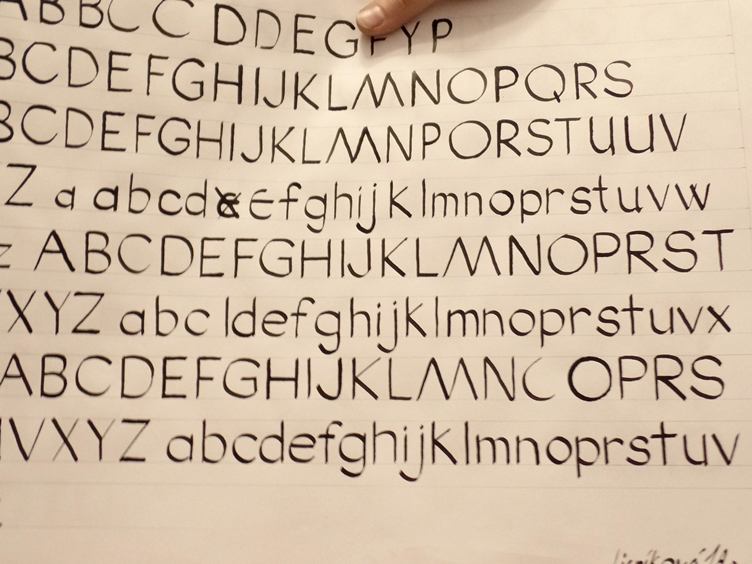 ABBCC C DDEGFYP
BCDEFGHIJKLMNOPQRS
BCDEFGHIJKLMNPORSTUUV
YZ a abcd efghijklmnoprstuvw
z ABCDEFGHIJKLMNOPRST
XYZ abc ldefghijklmnoprstuvx
ABCDEFGHIJKLMNC OPRS
VXYZ abcdefghijklmnoprstuv